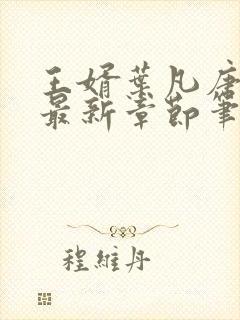 王婿叶凡唐
最新章節筆
程維丹